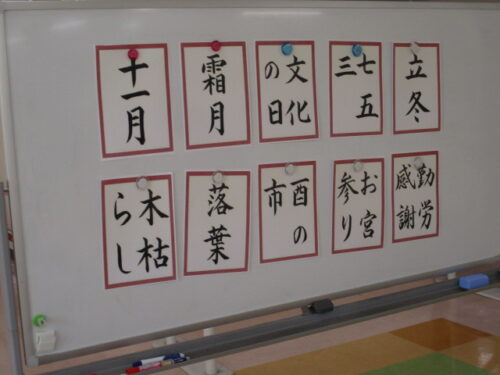 十一月
霜月
文化
の日
七五
三
立冬
木枯
らし
落葉
酉の
市
お宮
参り
勤労
感謝